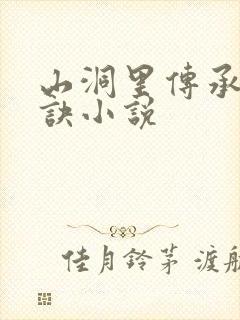 山洞里傳承
訣小说
佳月鈴茅 渡航